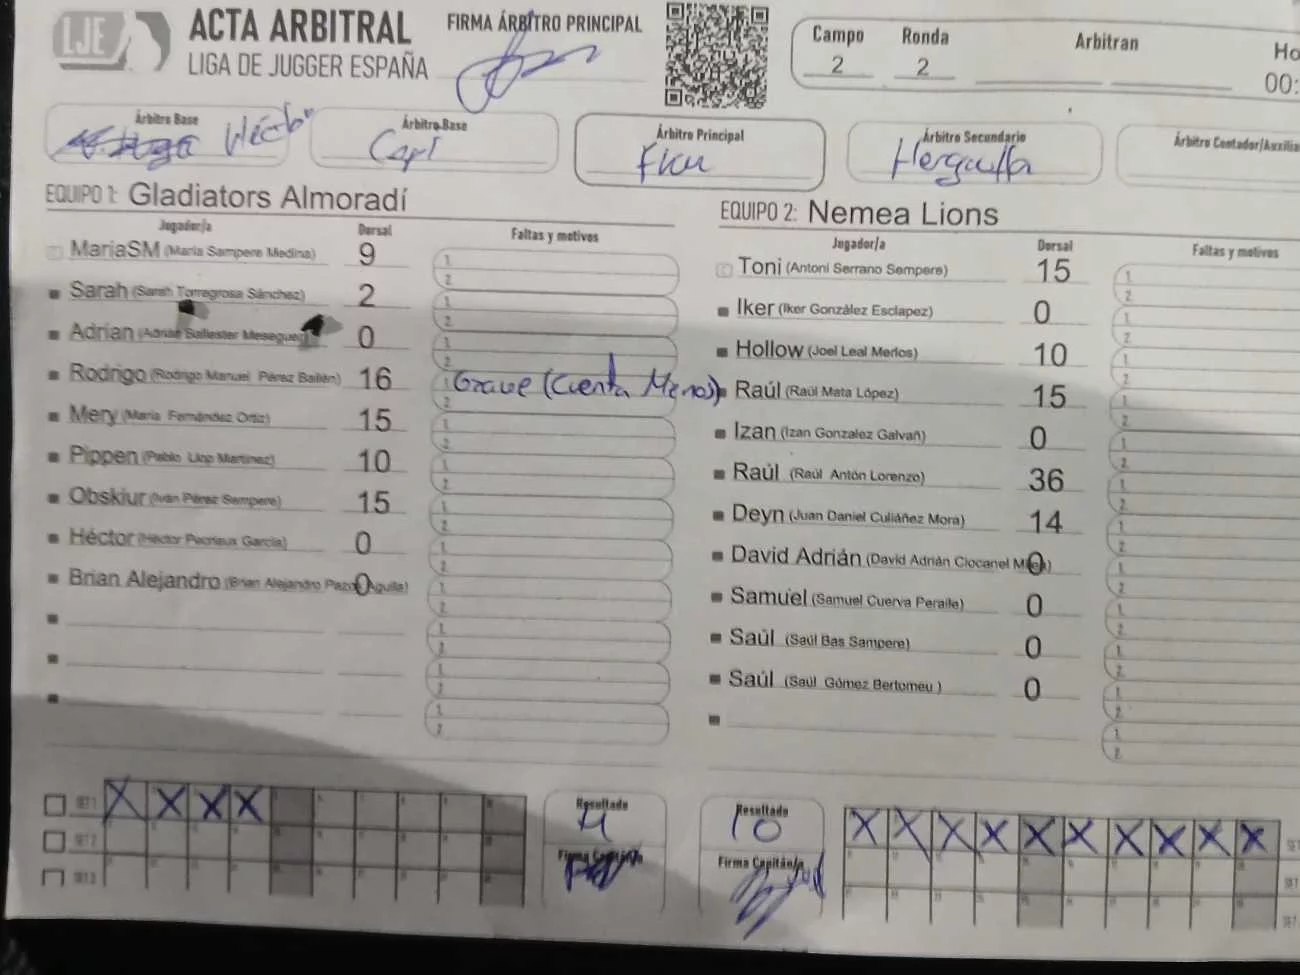 LJE ACTA ARBITRAL
LIGA DE JUGGER ESPAÑA
FIRMA ÁRBITRO PRINCIPAL
Campo Ronda Arbitran Ho
2 2 00:
Árbitro Base Árbitro Base Árbitro Principal Árbitro Secundario Árbitro Contador/Auxilia
Héctor
EQUIPO 1: Gladiators Almoradí
Jugador/a Dorsal Faltas y motivos
MariaSM (María Sampere Medina) 9 1. 2.
Sarah (Sarah Torregrosa Sánchez) 2 1. 2.
Adrian (Adrián Ballester Meseguer) 0 1. 2.
Rodrigo (Rodrigo Manuel Pérez Bailén) 16 1. Grave (Cuenta Menos) 2.
Mery (María Fernández Ortiz) 15 1. 2.
Pippen (Pablo Llop Martínez) 10 1. 2.
Obskiur (Iván Pérez Sempere) 15 1. 2.
Héctor (Héctor Pecrieux García) 0 1. 2.
Brian Alejandro (Brian Alejandro Pazos Aguilla) 0 1. 2.
1. 2.
1. 2.
1. 2.
EQUIPO 2: Nemea Lions
Jugador/a Dorsal Faltas y motivos
Toni (Antoni Serrano Sempere) 15 1. 2.
Iker (Iker González Esclapez) 0 1. 2.
Hollow (Joel Leal Merlos) 10 1. 2.
Raúl (Raúl Mata López) 15 1. 2.
Izan (Izan Gonzalez Galvañ) 0 1. 2.
Raúl (Raúl Antón Lorenzo) 36 1. 2.
Deyn (Juan Daniel Culiáñez Mora) 14 1. 2.
David Adrián (David Adrián Ciocanel 0 1. 2.
Samuel (Samuel Cuerva Peraile) 0 1. 2.
Saúl (Saúl Bas Sampere) 0 1. 2.
Saúl (Saúl Gómez Bertomeu ) 0 1. 2.
1. 2.
SET 1 X X X X
SET 2
SET 3
Resultado
4
Firma Capitán/a
Resultado
10
Firma Capitán/a
X X X X X X X X X X SET
SET
SET